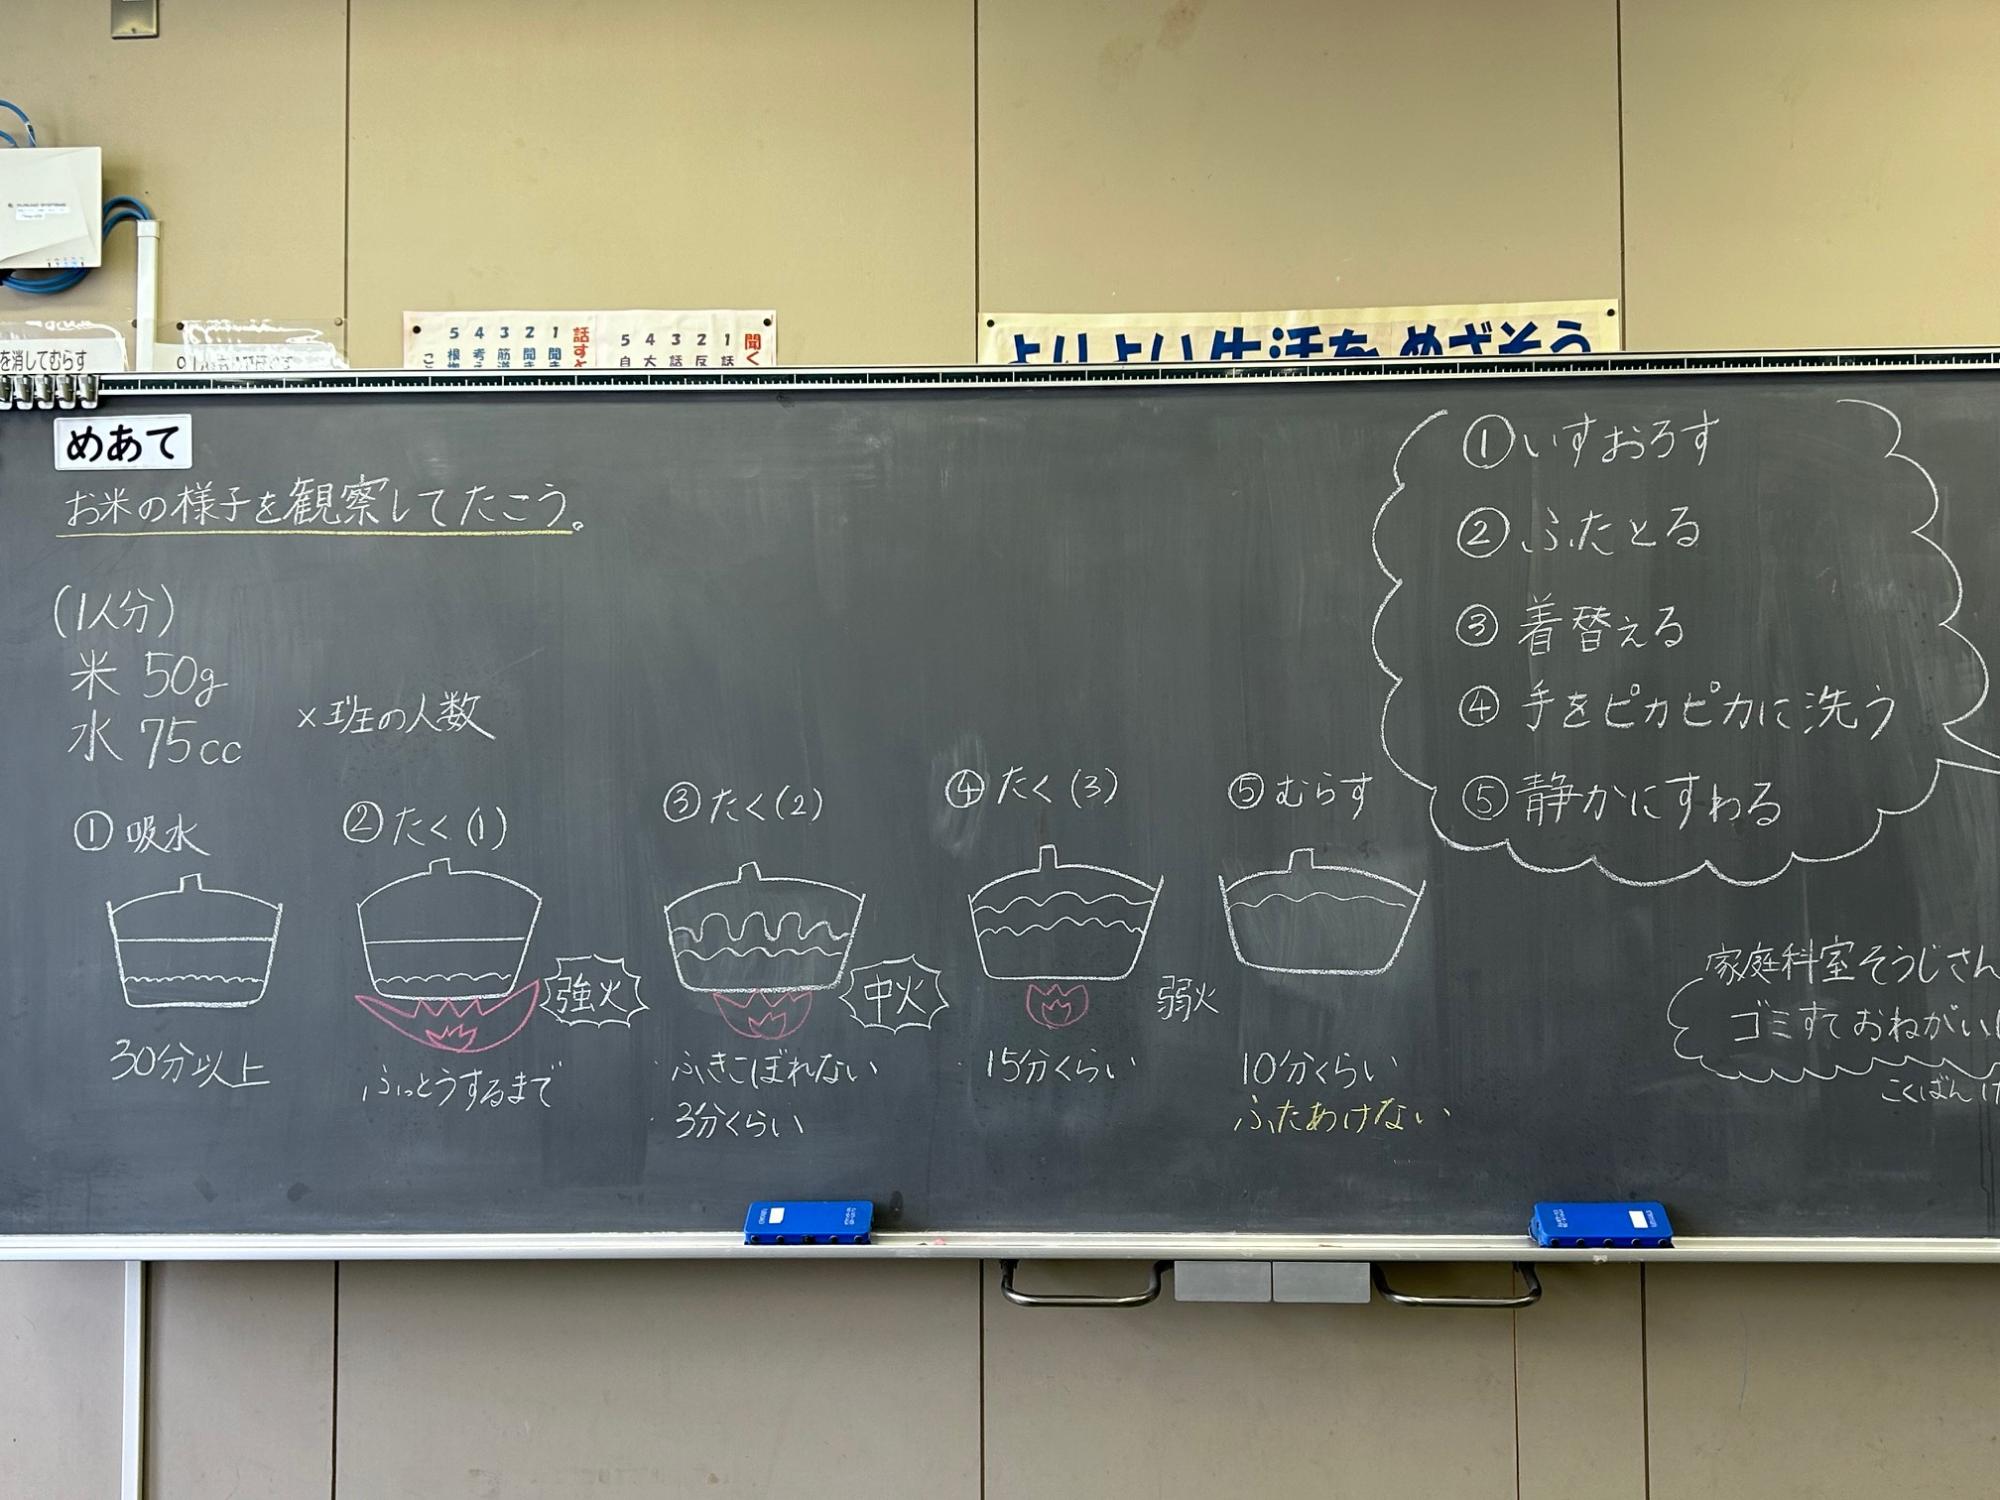 を消してむらす
話すと
1 聞き
2 聞き
3 筋道
4 考え
5 根拠
こ
聞く
1 話
2 反
3 話
4 大
5 自
よりよい生活をめざそう
めあて
お米の様子を観察してたこう。
(1人分)
米 50g
水 75cc
×班の人数
① 吸水
30分以上
② たく(1)
強火
ふっとうするまで
③ たく(2)
中火
・ふきこぼれない
・3分くらい
④ たく(3)
弱火
・15分くらい
⑤ むらす
10分くらい
ふたあけない
① いすおろす
② ふたとる
③ 着替える
④ 手をピカピカに洗う
⑤ 静かにすわる
家庭科室そうじさん
ゴミすておねがいし
こくばんけ